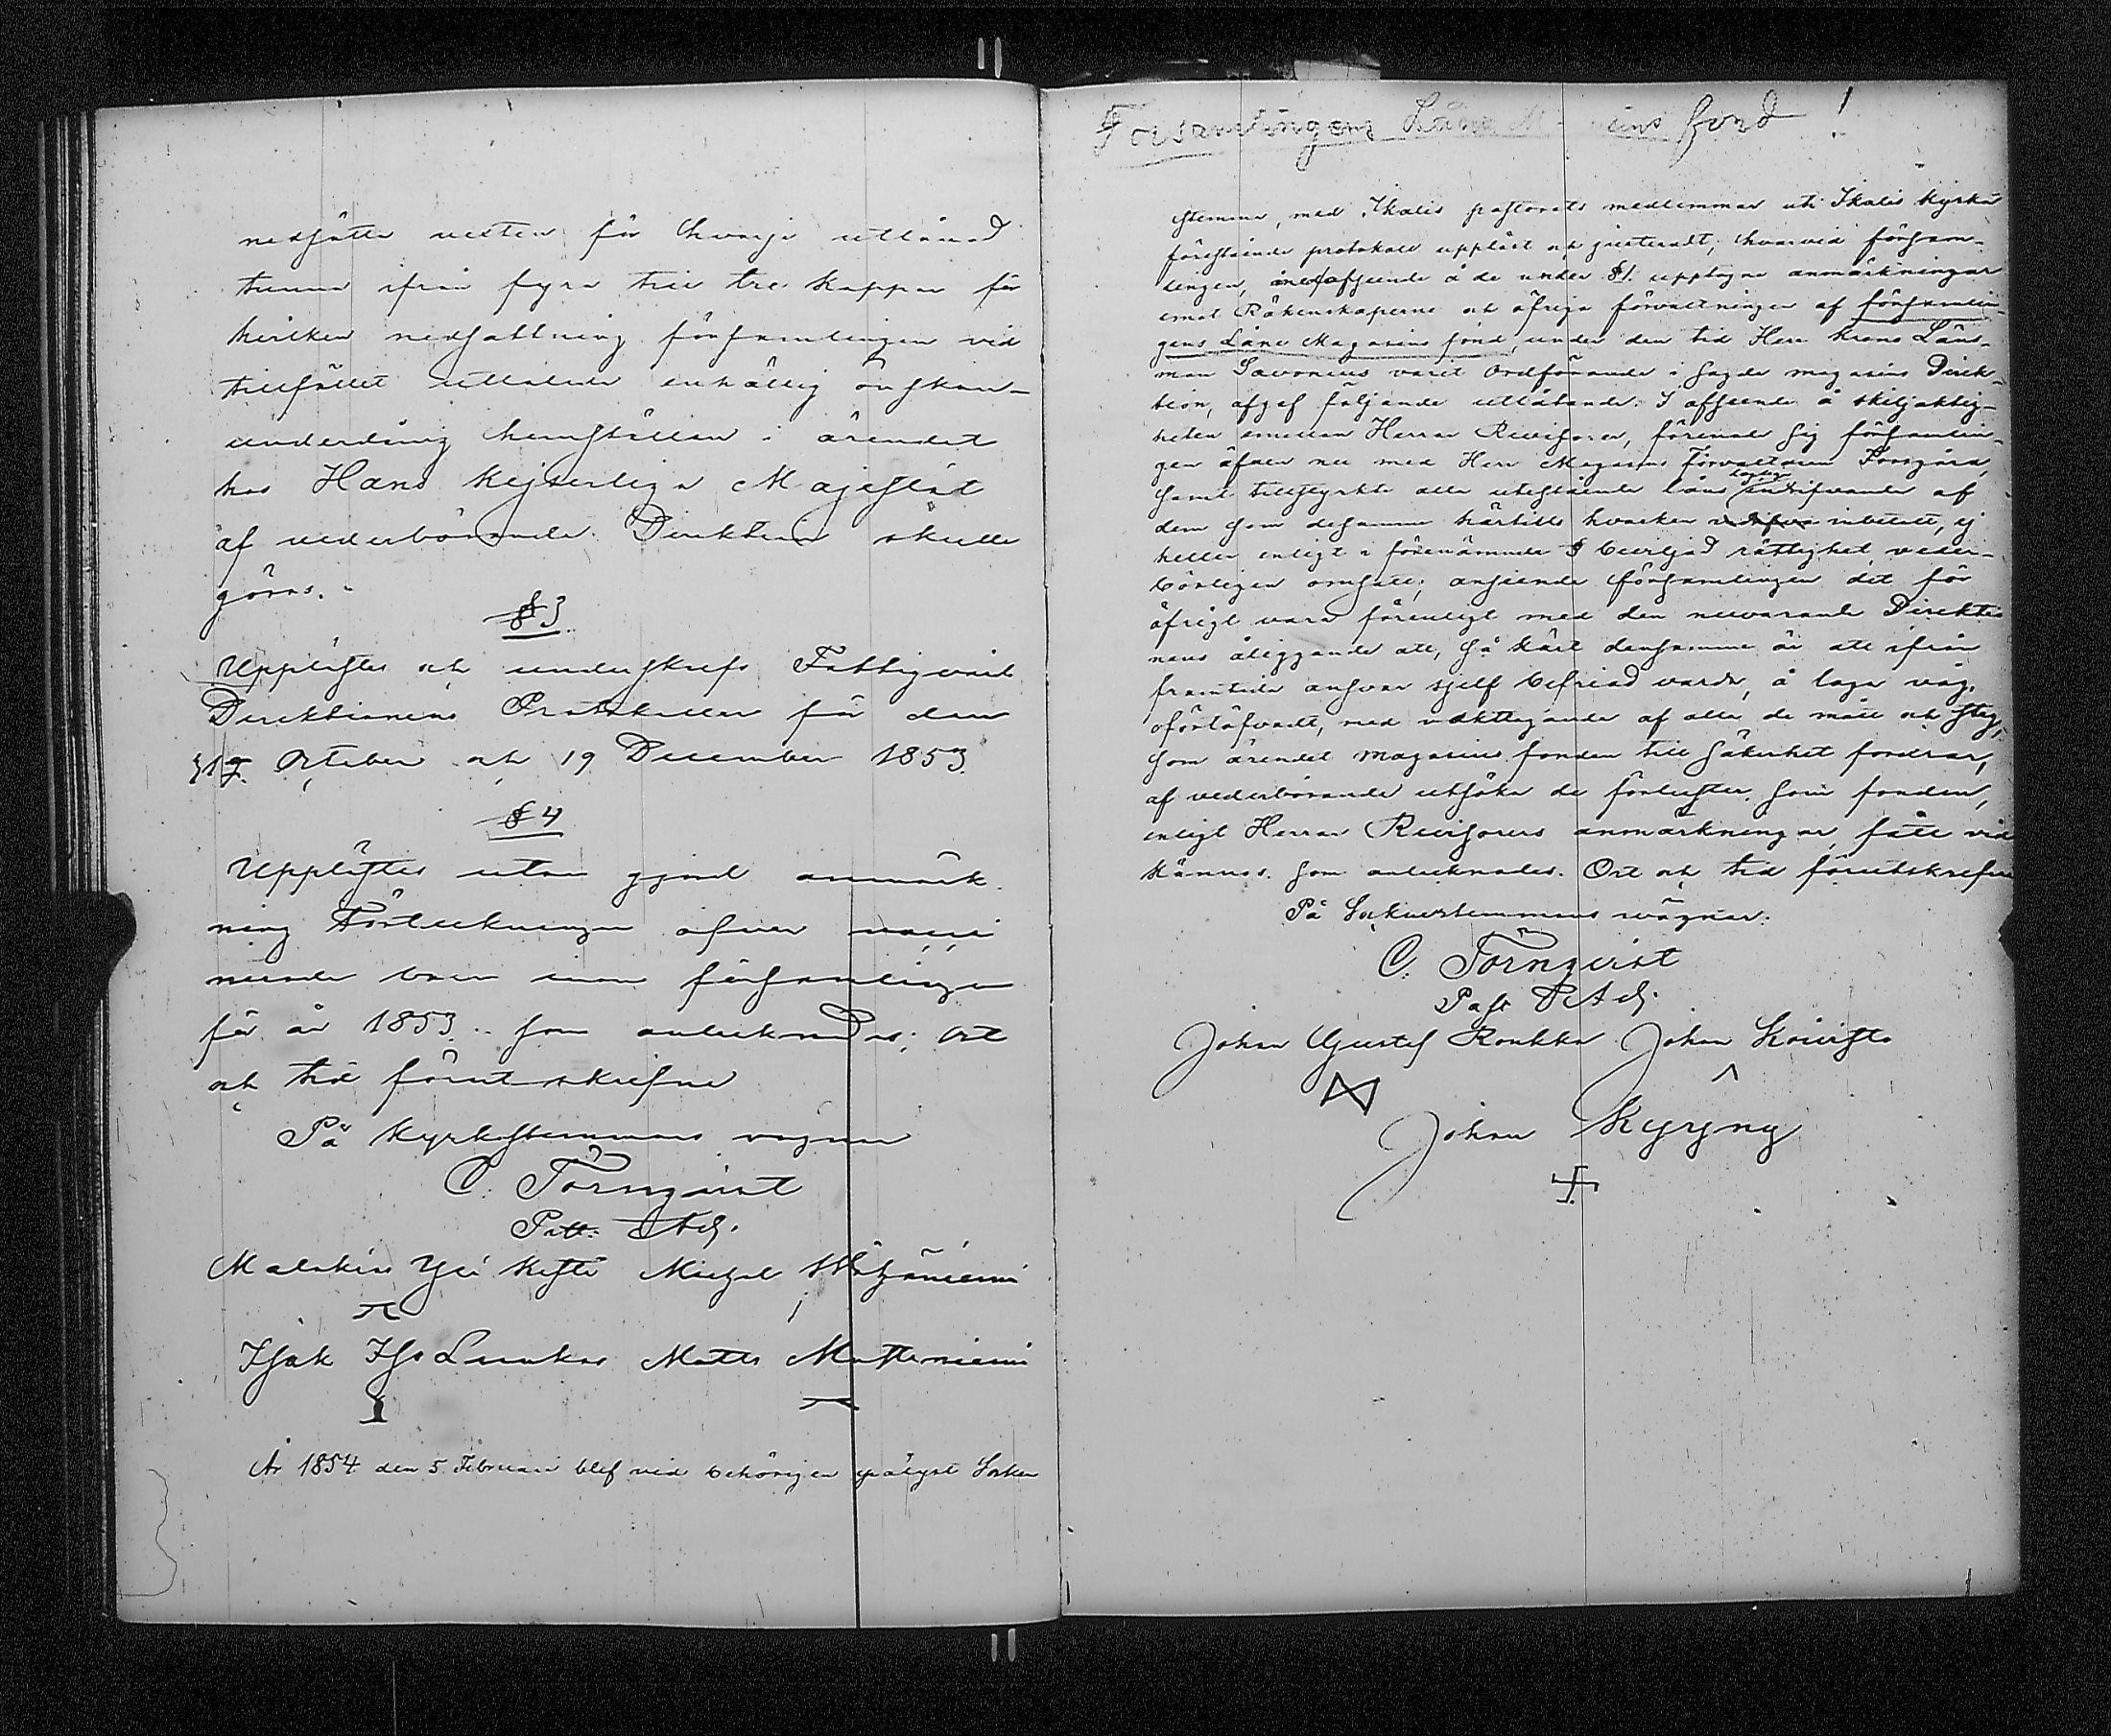 nedsätta vesten för hvarje utlånad
tunna ifrån fyra till tre kappar för
hvilken nedsättning församlingen vid
tillfället uttalade enhällig önskan
underdånig hemställan i ärendet
hos Hans Kejserliga Majestät
af vederbörande Direktion skulle
göras.
§ 3
Upplästes och underskrefs Fattigvård
Direktionens Protokoller för den
Octeber och 19 December 1853.
§ 4
Upplästes utan gjord anmärk
ning Förteckningen öfver
barn inom församlingen
för år 1853. som antecknades; Ort
och tid förut skrefne
På Kyrkostemmans vägnar
C. Törnqvist
Past. Adj.
Malakias Yli Kesti Michel
Isak Iso Luukas Matts Mattinniemi
År 1854 den 5 Februari blef vid behörigen pålyst Socken
Församlingens Låne fond
stemma, med Ikalis pastorats medlemmar uti Ikalis Kyrka
förestående protokoll uppläst och justeradt; hvarvid försam-
lingen, med afseende å de under §1. upptagne anmärkningar
emot Räkenskaperne och öfriga förvaltningen af församlin-
gens Låne Magasins fond, under den tid Herr Krono Läns-
man Savonius varit Ordförande i sagde magasins Direk-
tion, afgaf följande utlåtande: I afseende å skiljaktig-
heten emellan Herrar Revisorer, förenade sig församlin-
gen äfven nu med Herr Magasins Förvaltaren Forsgård,
samt tillstyrkte alla utestående låns indrifvande af
dem som desamma härtills hvarken inbetalt, ej
heller enligt i förenämnde § beviljad rättighet veder-
börligen omsatt; anseende församlingen det för
öfrigt vara förenligt med den nuvarande Direktio
nens åliggande att, så kärt densamma är att ifrån
framtida ansvar sjelf befriad varda, å laga väg,
oförtöfvadt, med vidtagande af alla de mått och steg,
som ärendet magasins fonden till säkerhet fordrar,
af vederbörande utsöka de förluster, som fonden,
enligt Herrar Revisorers anmärkningar, fått vid
kännas. Som antecknades. Ort och tid förutskrefne
På Sockenstemmans vägnar:
C. Törnqvist
Past. Adj.
Johan Gustaf Ronkka Johan Koivisto
Johan Kyryny